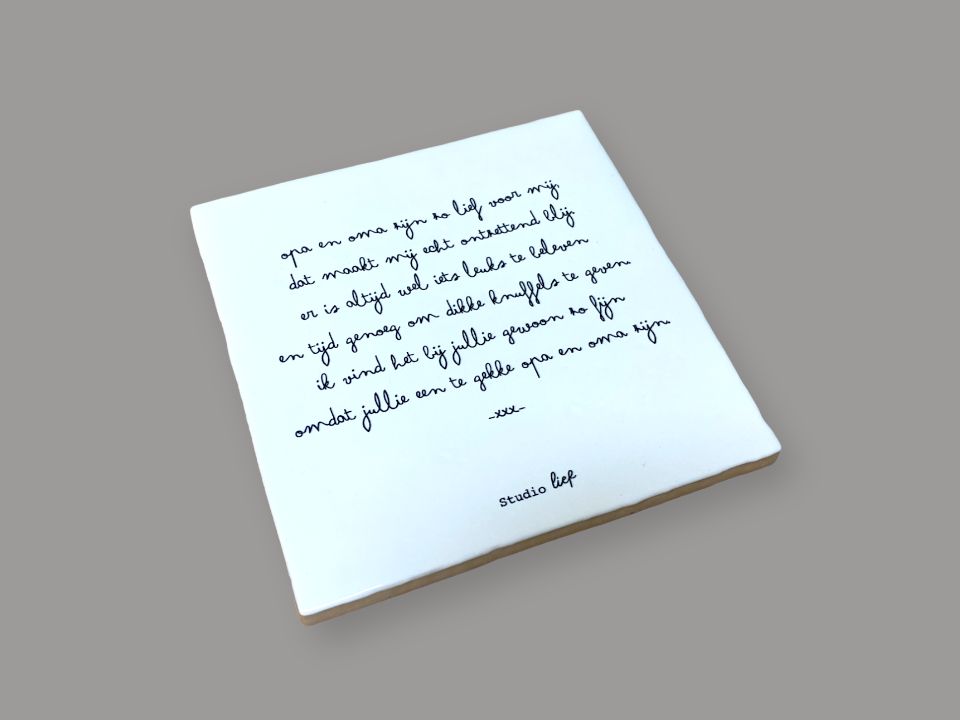 opa en oma zijn zo lief voor mij,
dat maakt mij echt ontzettend blij.
er is altijd wel iets leuks te beleven
en tijd genoeg om dikke knuffels te geven.
ik vind het bij jullie gewoon zo fijn
omdat jullie een te gekke opa en oma zijn.
-xxx-
Studio lief